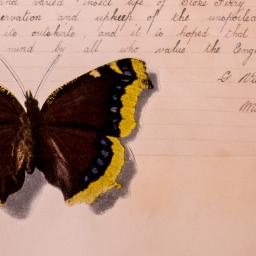 and varied insect life of Stoke Ferry
servation and upkeep of the unspoiled
its outskirts, and it is hoped that
mind by all who value the Eng